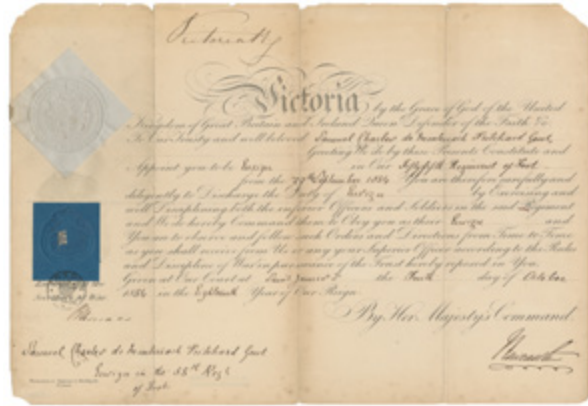 Victoria R
Victoria by the Grace of God of the United
Kingdom of Great Britain and Ireland Queen Defender of the Faith &c
To Our Trusty and well beloved Samuel Charles
Greeting We do by these Presents Constitute and
Appoint you to be Ensign in Our Regiment of Foot
from the 29th September 1854 You are therefore carefully and
diligently to Discharge the Duty of Ensign by Exercising and
well Disciplining both the inferior Officers and Soldiers in the said Regiment
and We do hereby Command them to Obey you as their Ensign and
You are to observe and follow such Orders and Directions from Time to Time
as you shall receive from Us or any your Superior Officer according to the Rules
and Discipline of War in pursuance of the Trust hereby reposed in You.
Given at Our Court at Saint James's the day of October
1854 in the Eighteenth Year of Our Reign.
By Her Majesty's Command
Newcastle
Samuel Charles
Ensign in the Regt
of Foot